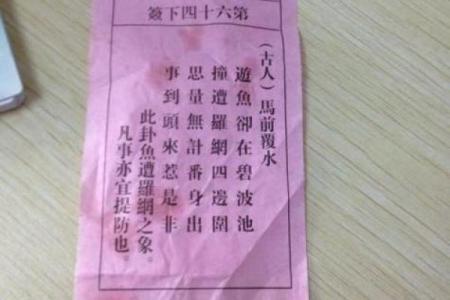 簽下四十六第
(古人)馬前覆水
遊魚卻在碧波池
撞遭羅網四邊圍
思量無計番身出
事到頭來惹是非
此卦魚遭羅網之象。
凡事亦宜提防也。